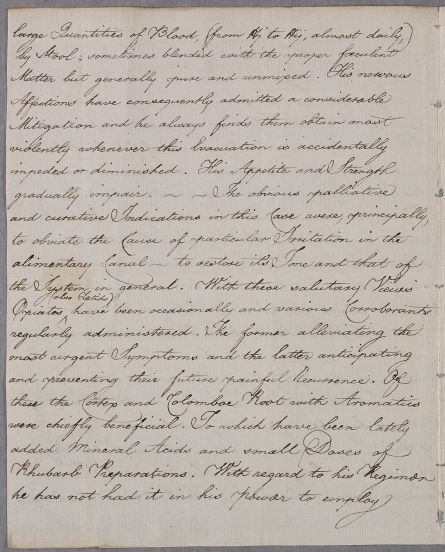 large Quantities of Blood, (from ℔i to ℔ij, almost daily,)
by Stool; sometimes blended with the proper feculent
Matter but generally pure and unmixed. His nervous
Affections have consequently admitted a considerable
Mitigation and he always finds them obtain most
violently whenever this Evacuation is accidentally
impeded or diminished. His Appetite and Strength
gradually impair. — — The obvious palliative
and curative Indications in this Case were, principally,
to obviate the Cause of particular Irritation in the
alimentary Canal — to restore its Tone and that of
the System in general. With these salutary Views
(also Fœtids)
Opiates, have been occasionally and various Corroborants
regularly administered. The former alleviating the
most urgent Symptoms and the latter anticipating
and preventing their future painful Recurrence. Of
these the Cortex and Colomboe Root with Aromatics
were chiefly beneficial. To which have been lately
added Mineral Acids and small Doses of
Rhubarb Preparations. With regard to his Regimen
he has not had it in his power to employ